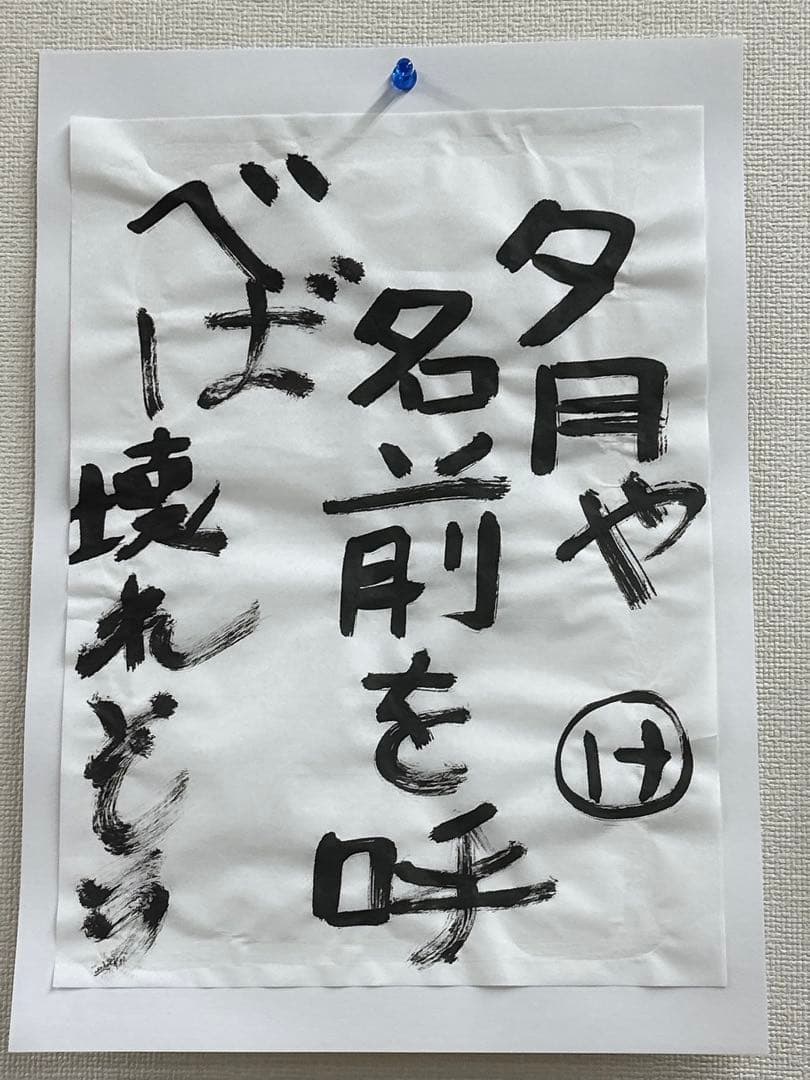 夕月や
け
名前を呼
べば壊れそう